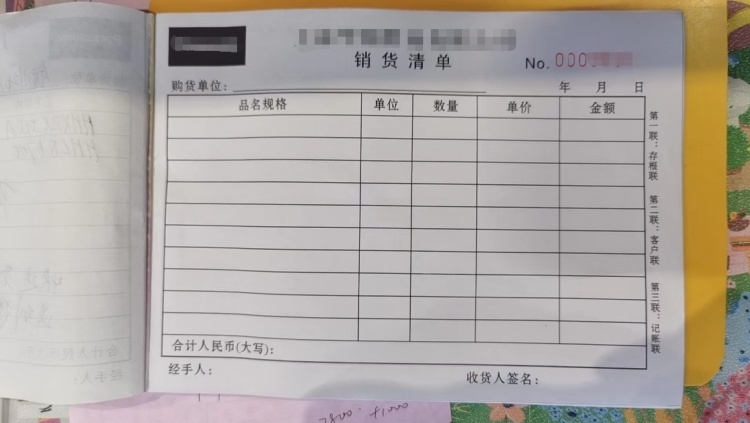 销货清单
No. 000
购货单位：
年 月 日
品名规格 单位 数量 单价 金额
第一联：存根联
第二联：客户联
第三联：记账联
合计人民币(大写)：
经手人： 收货人签名：
合计人民币(大
经手人：